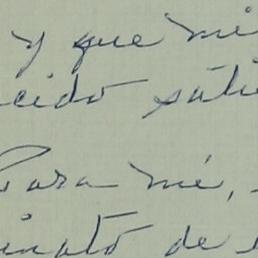 y que mi
cido sati
Para mí,
inato de